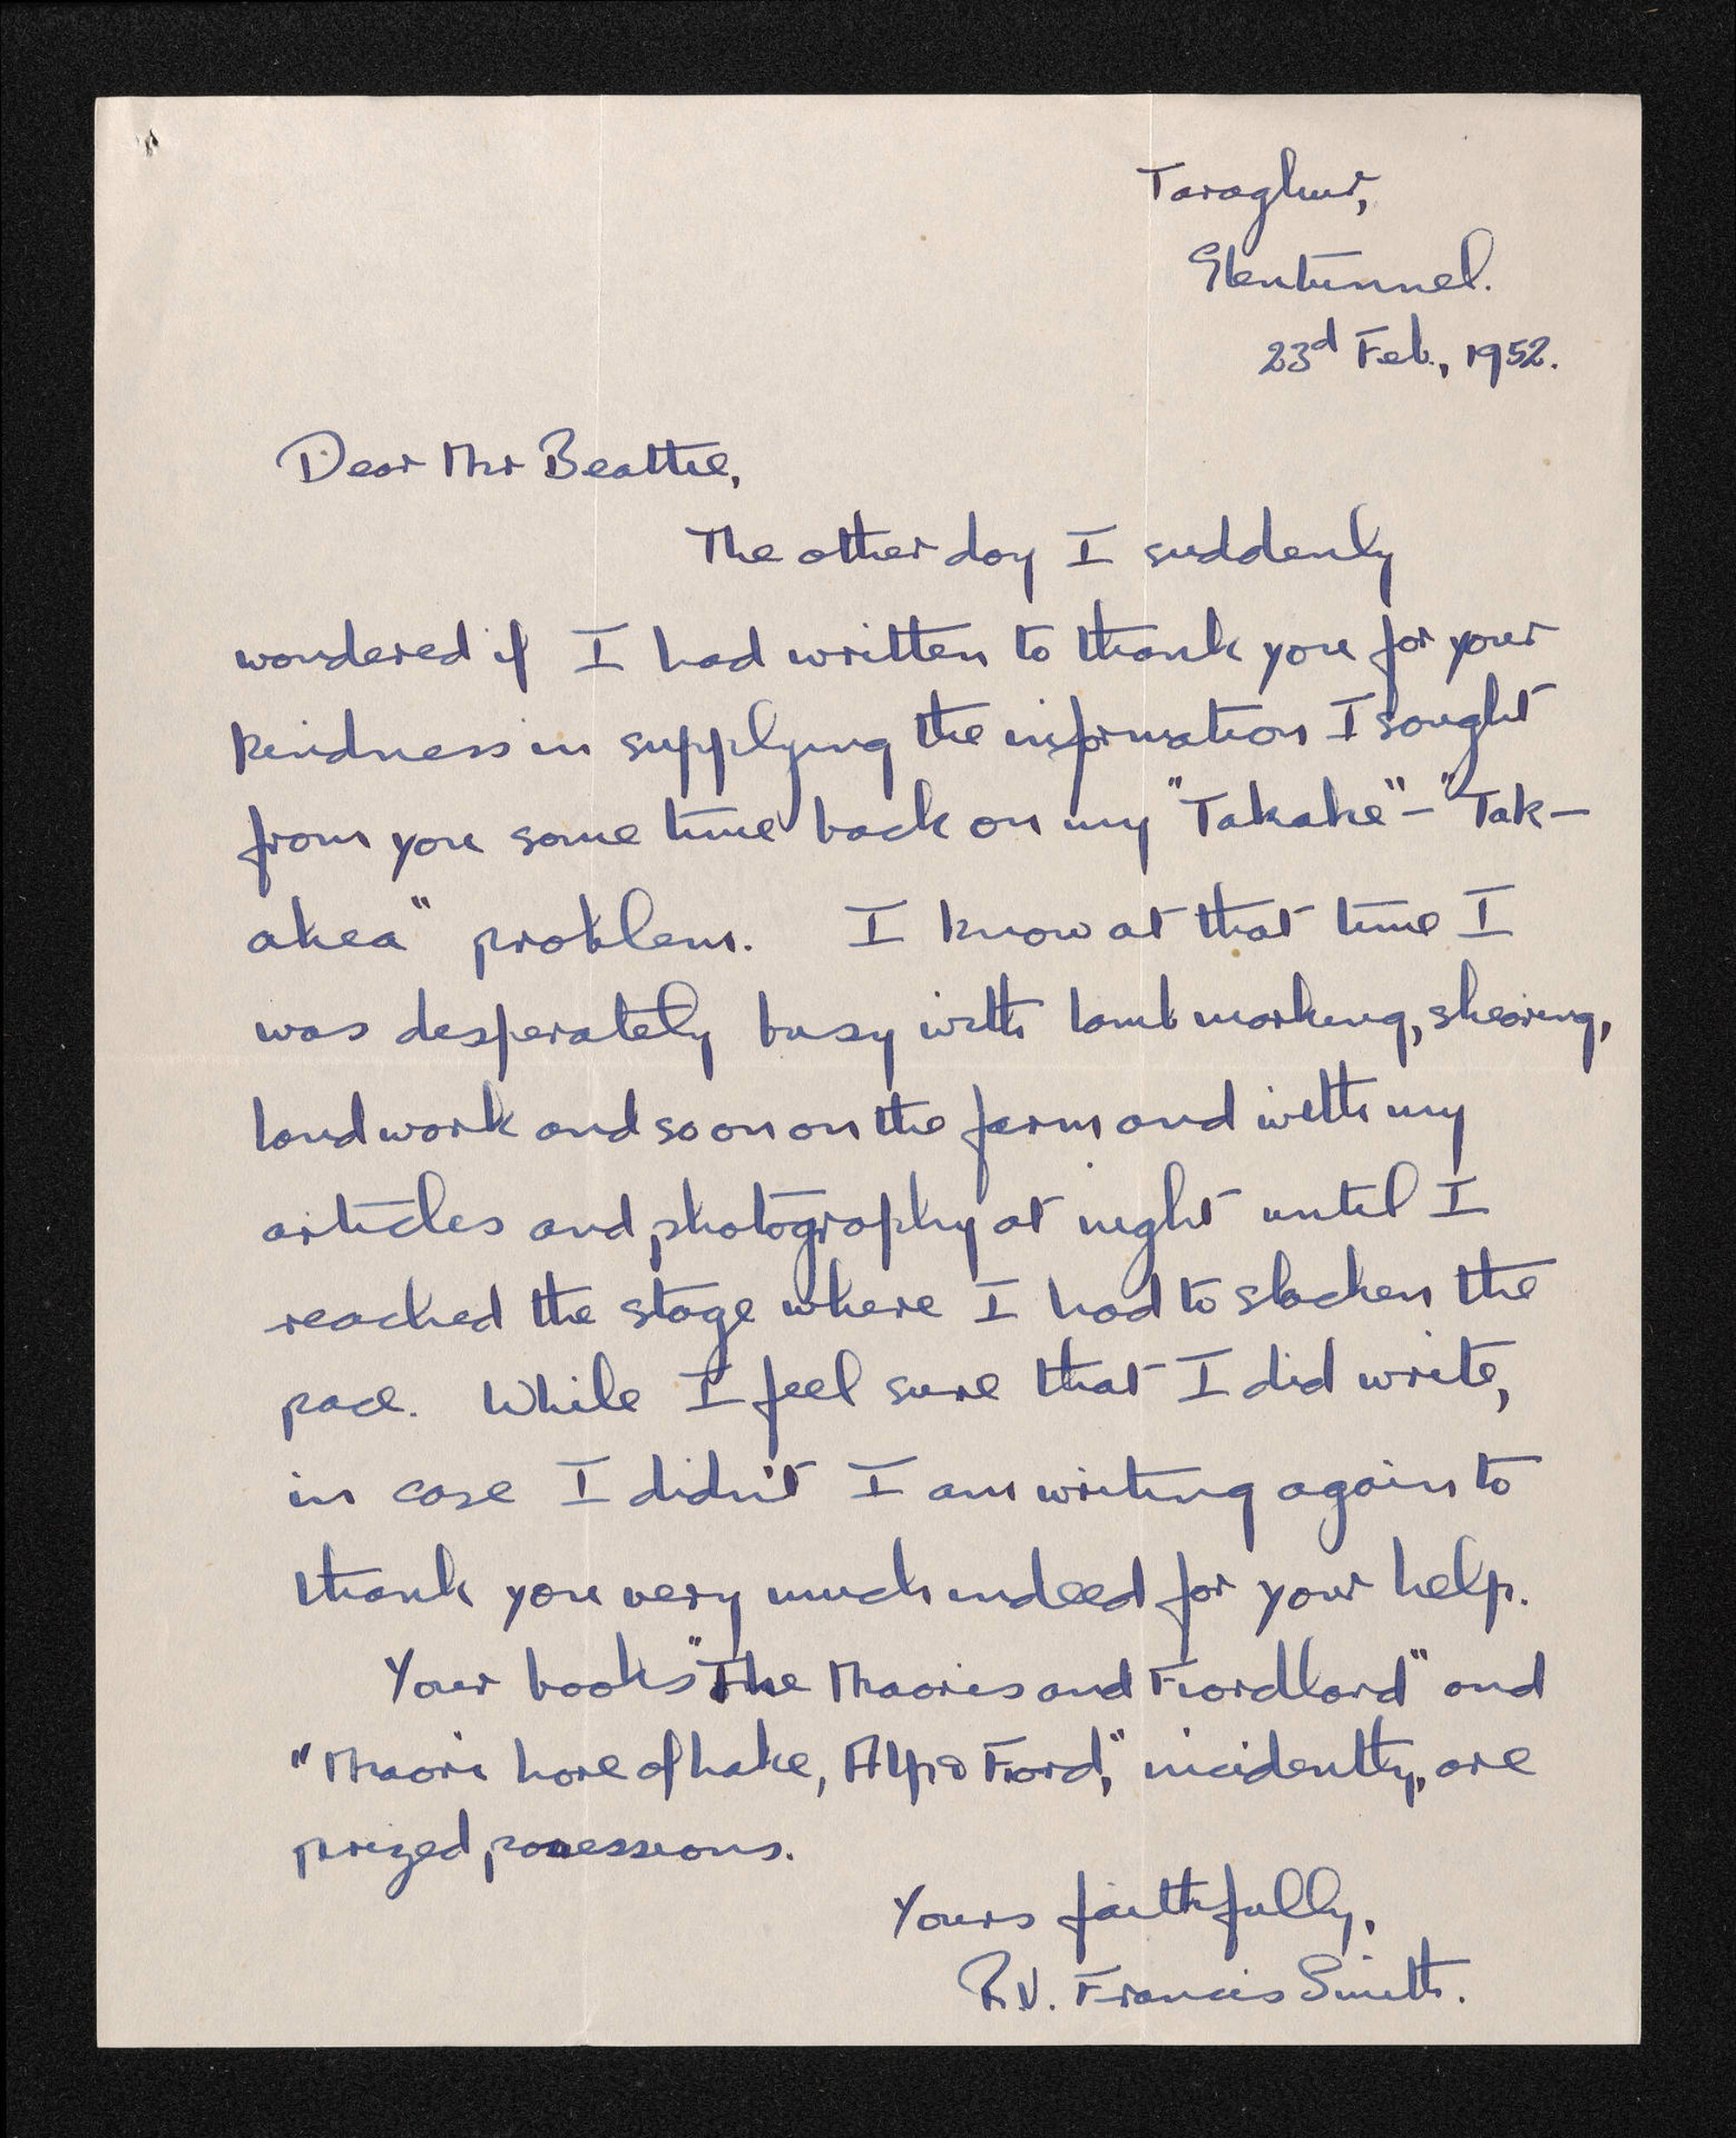 Taraghur,
Glentunnel.
23d Feb., 1952.
Dear Mr Beattie,
The other day I suddenly
wondered if I had written to thank you for your
kindness in supplying the information I sought
from you some time back on my "Takahe" - "Tak-
ahea" problem. I know at that time I
was desperately busy with lamb marking, shearing,
land work and so on on the farm and with my
articles and photography at night until I
reached the stage where I had to slacken the
pace. While I feel sure that I did write,
in case I didn't I am writing again to
thank you very much indeed for your help.
Your books "The Maories and Fiordland" and
"Maori Lore of Lake, Alp & Fiord," incidently, are
prized possessions.
Yours faithfully,
R.V. Francis Smith.